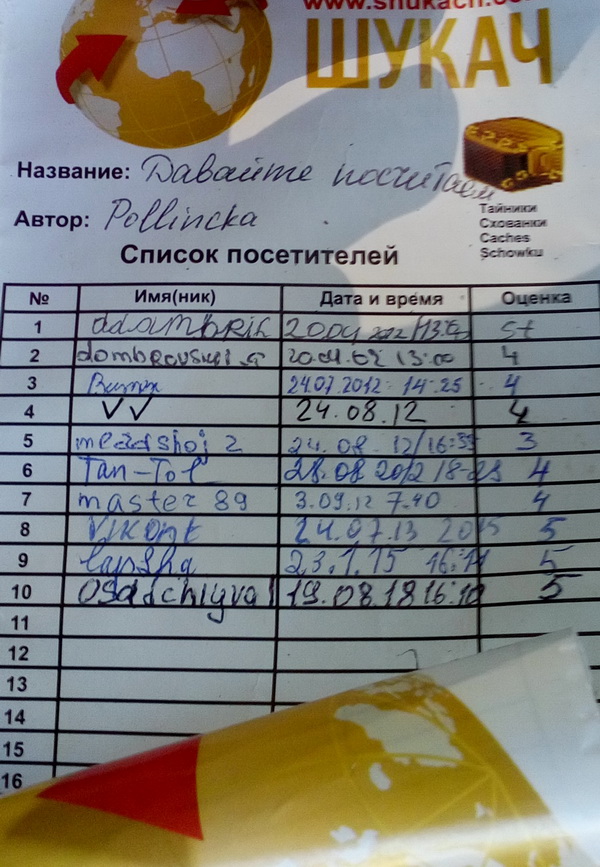 www.shukach.com
ШУКАЧ
Название: Давайте посчитаем
Автор: Pollincka
Тайники
Схованки
Caches
Schowku
Список посетителей
№ Имя(ник) Дата и время Оценка
1
2 13:00 4
3 24.07.2012 14:25 4
4 VV 24.08.12 4
5 24.08.12/16:35 3
6 Tan-Tol 28.08.2012 18-23 4
7 master 89 3.09.12 7.40 4
8 Vikont 24.07.13 2015 5
9 lapsha 23.1.15 16:11 5
10 osadchiyval 19.08.18 16:10 5
11
12
13
14
15
16